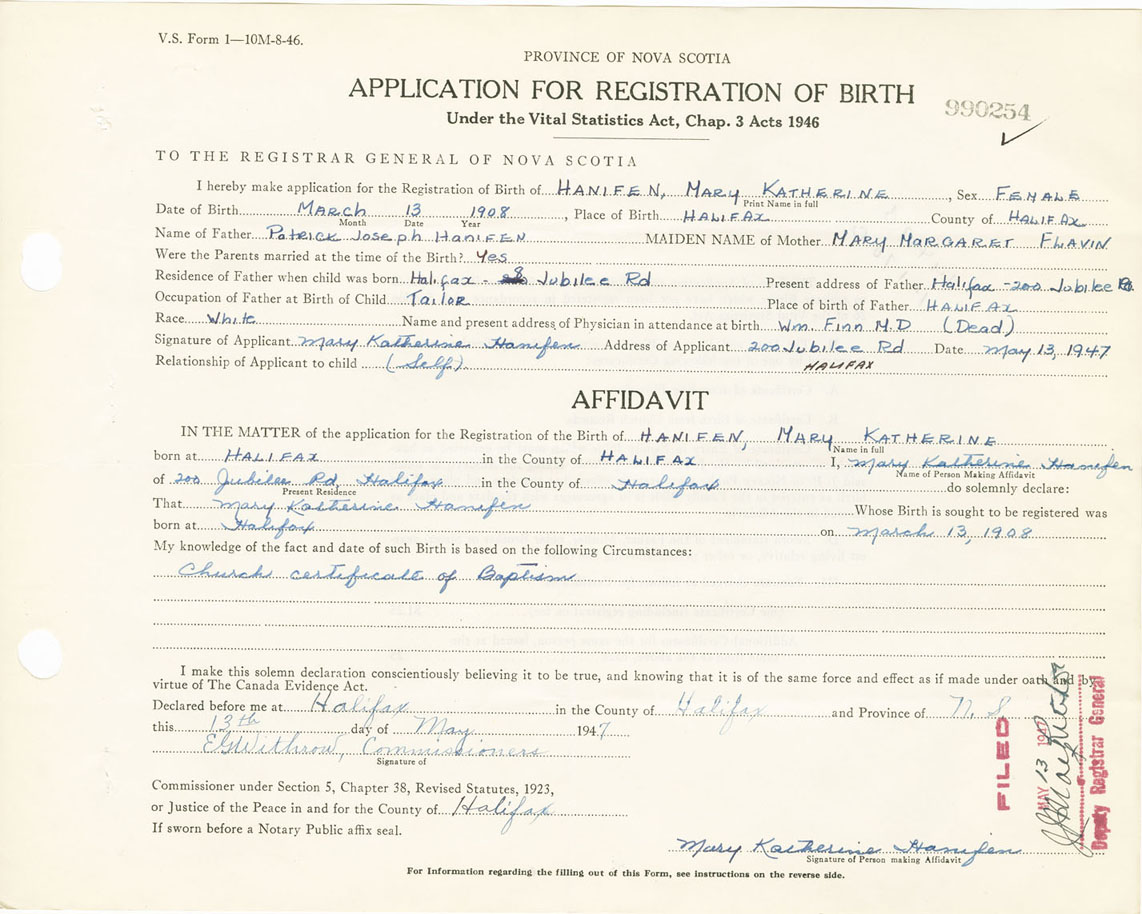 V.S. Form 1—10M-8-46.
PROVINCE OF NOVA SCOTIA
APPLICATION FOR REGISTRATION OF BIRTH
990254
Under the Vital Statistics Act, Chap. 3 Acts 1946
TO THE REGISTRAR GENERAL OF NOVA SCOTIA
I hereby make application for the Registration of Birth of HANIFEN, MARY KATHERINE, Sex FEMALE
Print Name in full
Date of Birth MARCH 13 1908, Place of Birth HALIFAX County of HALIFAX
Month Date Year
Name of Father Patrick Joseph HANIFEN MAIDEN NAME of Mother MARY MARGARET FLAVIN
Were the Parents married at the time of the Birth? Yes
Residence of Father when child was born Halifax - Jubilee Rd Present address of Father Halifax - 200 Jubilee Rd.
Occupation of Father at Birth of Child Tailor Place of birth of Father HALIFAX
Race White Name and present address of Physician in attendance at birth Wm. Finn M.D (Dead)
Signature of Applicant Mary Katherine Hanifen Address of Applicant 200 Jubilee Rd Date May 13, 1947
Relationship of Applicant to child (Self) HALIFAX
AFFIDAVIT
IN THE MATTER of the application for the Registration of the Birth of HANIFEN, MARY KATHERINE
Name in full
born at HALIFAX in the County of HALIFAX I, Mary Katherine Hanifen
Name of Person Making Affidavit
of 200 Jubilee Rd, Halifax in the County of Halifax do solemnly declare:
Present Residence
That Mary Katherine Hanifen Whose Birth is sought to be registered was
born at Halifax on March 13, 1908
My knowledge of the fact and date of such Birth is based on the following Circumstances:
Church certificate of Baptism
I make this solemn declaration conscientiously believing it to be true, and knowing that it is of the same force and effect as if made under oath and by
virtue of The Canada Evidence Act.
Declared before me at Halifax in the County of Halifax and Province of N. S
this 13th day of May 1947
EG Withrow, Commissioners
Signature of
Commissioner under Section 5, Chapter 38, Revised Statutes, 1923,
or Justice of the Peace in and for the County of Halifax
If sworn before a Notary Public affix seal.
FILED
MAY 13 1947
Deputy Registrar General
Mary Katherine Hanifen
Signature of Person making Affidavit
For Information regarding the filling out of this Form, see instructions on the reverse side.